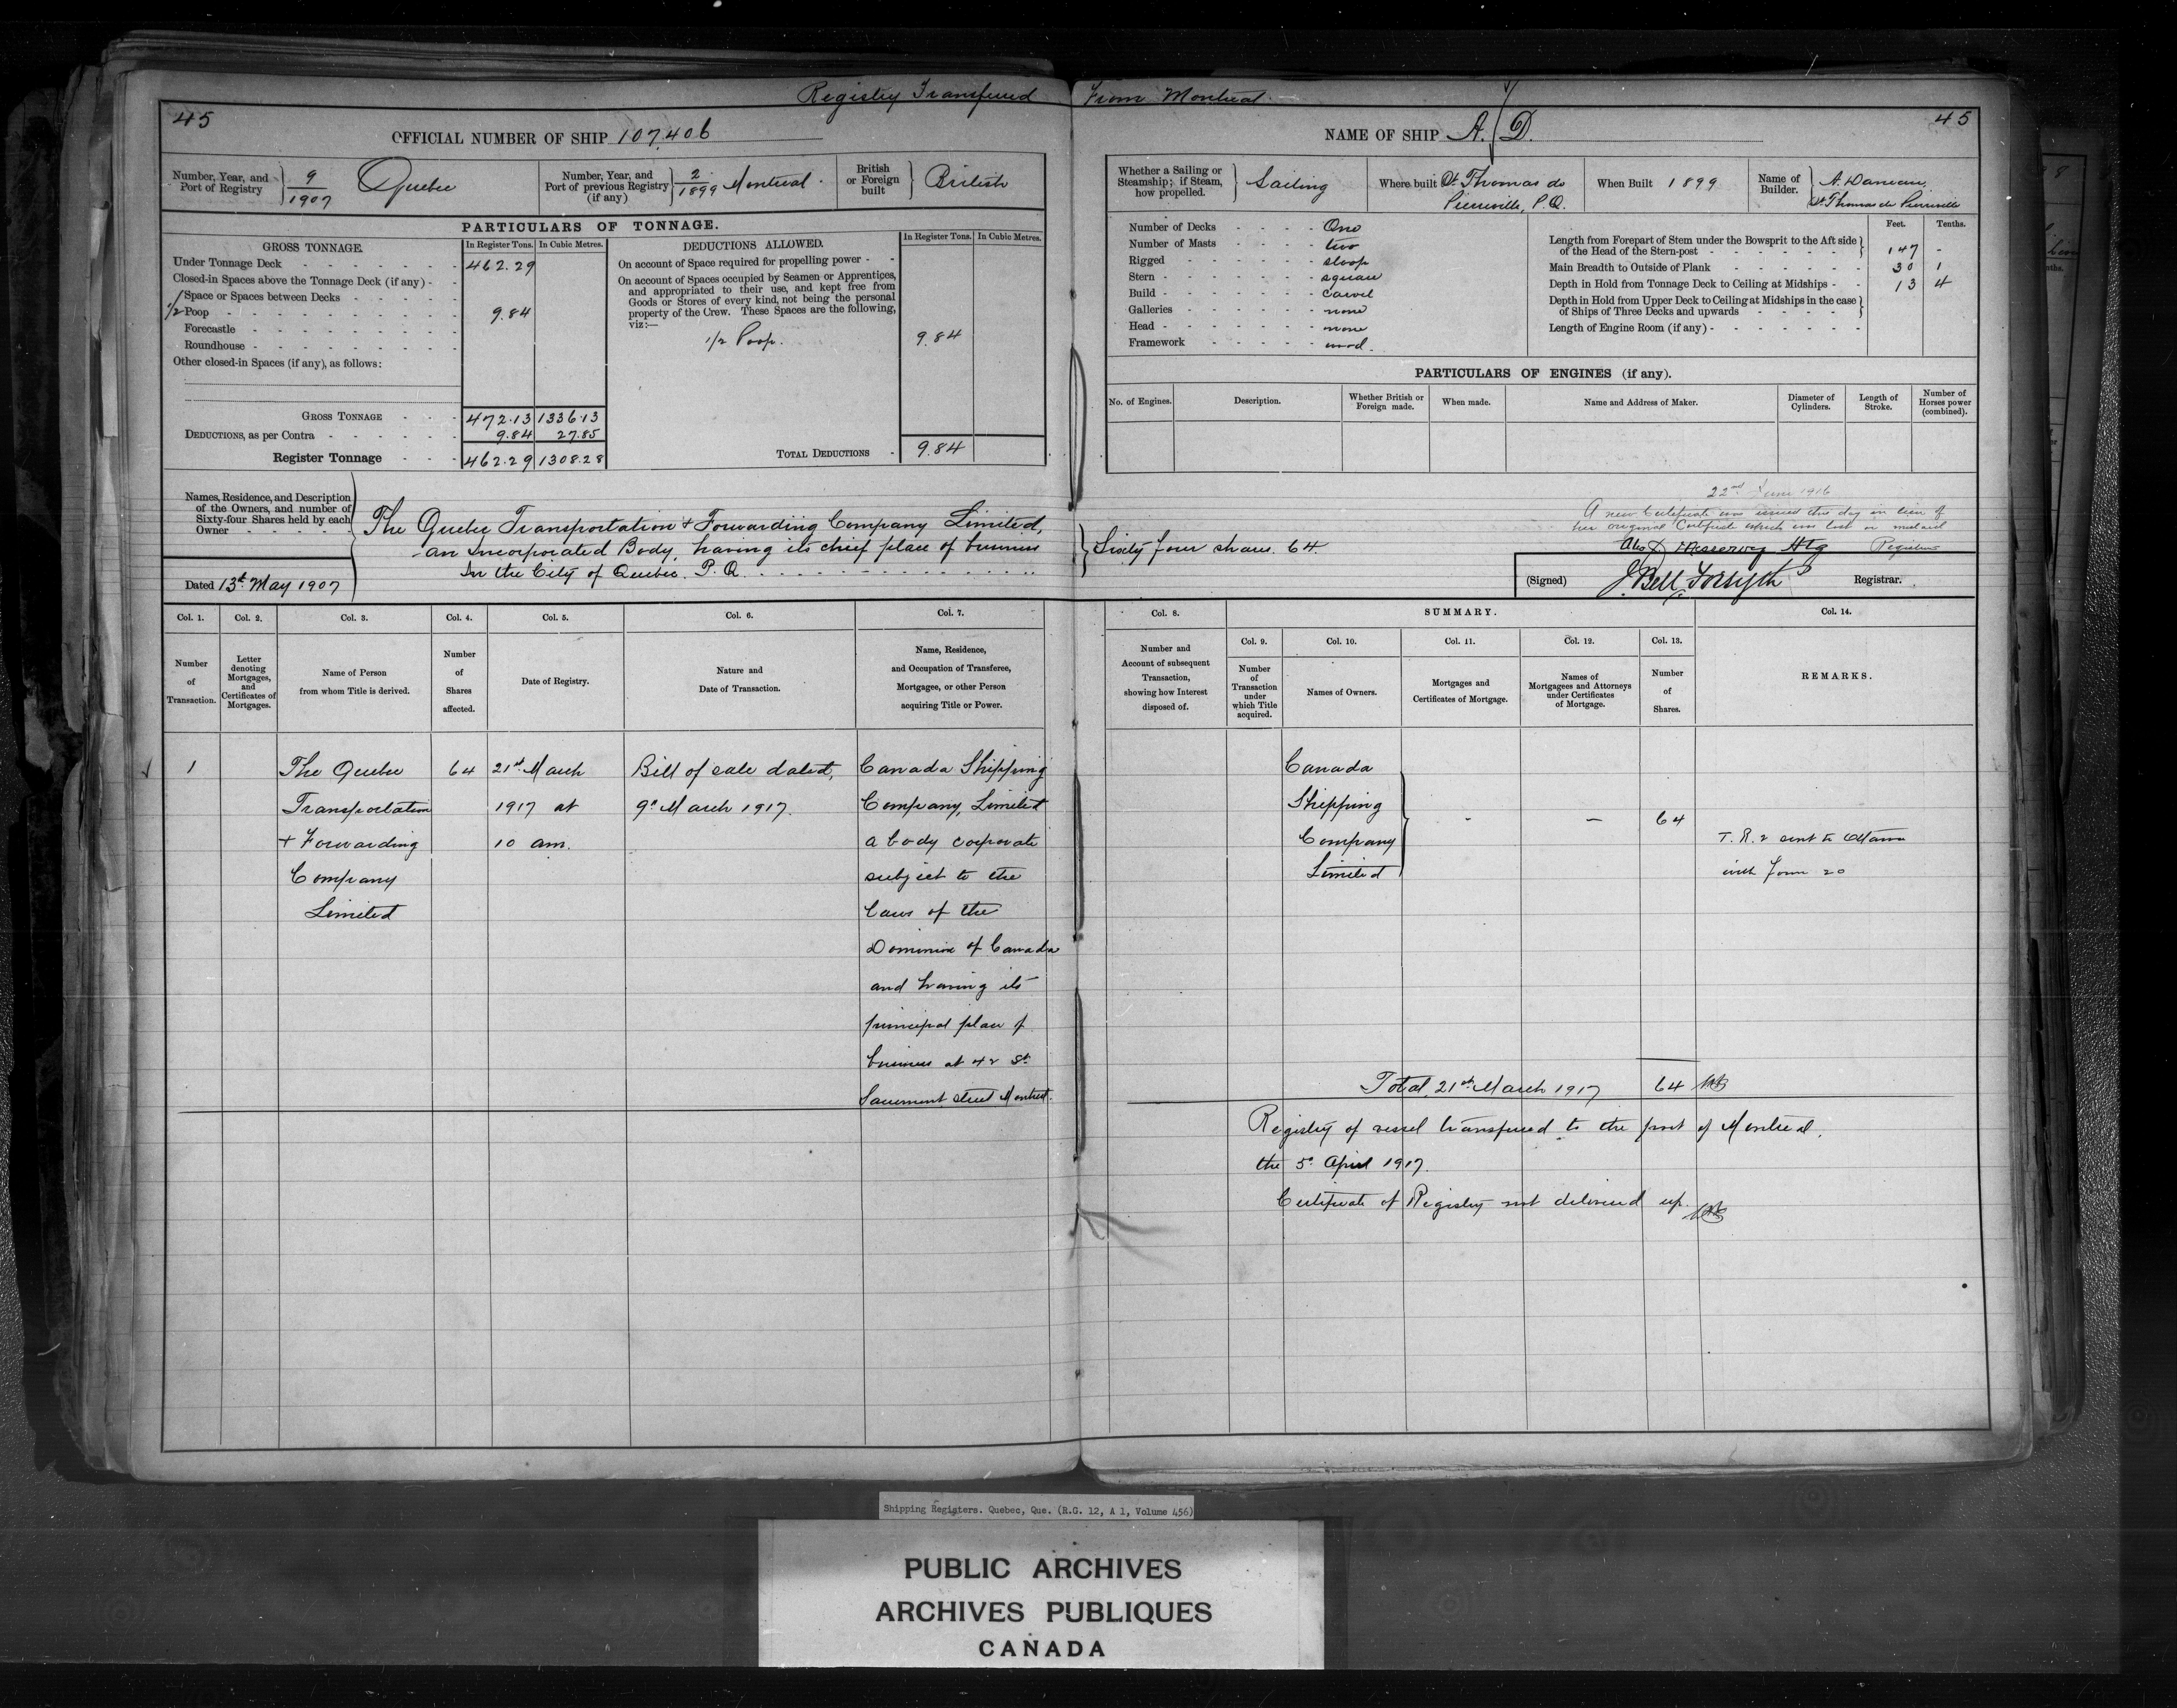 Registry Transferred From Montreal.
45
OFFICIAL NUMBER OF SHIP 107,406
Number, Year, and Port of Registry 9/1907 Quebec
Number, Year, and Port of previous Registry (if any) 2/1899 Montreal.
British or Foreign built British
PARTICULARS OF TONNAGE.
GROSS TONNAGE. In Register Tons. In Cubic Metres.
Under Tonnage Deck 462.29
Closed-in Spaces above the Tonnage Deck (if any)
Space or Spaces between Decks
1/2 Poop 9.84
Forecastle
Roundhouse
Other closed-in Spaces (if any), as follows:
GROSS TONNAGE 472.13 1336.13
DEDUCTIONS, as per Contra 9.84 27.85
Register Tonnage 462.29 1308.28
DEDUCTIONS ALLOWED. In Register Tons. In Cubic Metres.
On account of Space required for propelling power
On account of Spaces occupied by Seamen or Apprentices,
and appropriated to their use, and kept free from
Goods or Stores of every kind, not being the personal
property of the Crew. These Spaces are the following,
viz:—
1/2 Poop. 9.84
TOTAL DEDUCTIONS 9.84
Names, Residence, and Description
of the Owners, and number of
Sixty-four Shares held by each
Owner
The Quebec Transportation & Forwarding Company Limited,
an Incorporated Body, having its chief place of business
In the City of Quebec. P.Q.
Dated 13th May 1907
45
NAME OF SHIP A. D.
Whether a Sailing or Steamship; if Steam, how propelled. Sailing
Where built St Thomas de Pierreville, P.Q.
When Built 1899
Name of Builder. A. Daneau, St Thomas de Pierreville
Number of Decks One
Number of Masts two
Rigged sloop
Stern square
Build carvel
Galleries none
Head none
Framework wood.
Feet. Tenths.
Length from Forepart of Stem under the Bowsprit to the Aft side
of the Head of the Stern-post 147 -
Main Breadth to Outside of Plank 30 1
Depth in Hold from Tonnage Deck to Ceiling at Midships 13 4
Depth in Hold from Upper Deck to Ceiling at Midships in the case
of Ships of Three Decks and upwards
Length of Engine Room (if any)
PARTICULARS OF ENGINES (if any).
No. of Engines. Description. Whether British or Foreign made. When made. Name and Address of Maker. Diameter of Cylinders. Length of Stroke. Number of Horses power (combined).
22nd June 1916
A new Certificate was issued this day in lieu of
her original Certificate which was lost or mislaid
Registrar
Sixty four shares. 64
(Signed) J. Bell Forsyth Registrar.
Col. 1. Col. 2. Col. 3. Col. 4. Col. 5. Col. 6. Col. 7.
Number of Transaction.
Letter denoting Mortgages, and Certificates of Mortgages.
Name of Person from whom Title is derived.
Number of Shares affected.
Date of Registry.
Nature and Date of Transaction.
Name, Residence, and Occupation of Transferee, Mortgagee, or other Person acquiring Title or Power.
Col. 8. SUMMARY. Col. 14.
Col. 9. Col. 10. Col. 11. Col. 12. Col. 13.
Number and Account of subsequent Transaction, showing how Interest disposed of.
Number of Transaction under which Title acquired.
Names of Owners.
Mortgages and Certificates of Mortgage.
Names of Mortgagees and Attorneys under Certificates of Mortgage.
Number of Shares.
REMARKS.
1 The Quebec 64 21st March Bill of sale dated, Canada Shipping
Transportation 1917 at 9th March 1917. Company, Limited
& Forwarding 10 am. a body corporate
Company subject to the
Limited laws of the
Dominion of Canada
and having its
principal place of
business at 42 St.
Sacrement street Montreal.
Canada
Shipping
Company
Limited
- - 64
T.R.2 sent to Ottawa
with Form 20
Total, 21st March 1917 64
Registry of vessel transferred to the port of Montreal,
the 5th April 1917.
Certificate of Registry not delivered up.
Shipping Registers. Quebec, Que. (R.G. 12, A 1, Volume 456)
PUBLIC ARCHIVES
ARCHIVES PUBLIQUES
CANADA